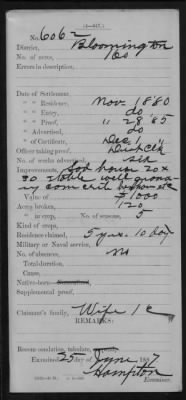 (4—047.)
No. 6062
District, Bloomington
No. of acres, 160
Errors in description,
Date of Settlement,
" " Residence, Nov. 1880
" " Entry, do
" " Proof, " 28 '85
" " Advertised, do
" " of Certificate, Dec 1
Officer taking proof,
No. weeks advertised, six
Improvements, Sod house 20x
30 stable well grana-
ry corn crib
Value of $1000
Acres broken, 120
" in crop, No. of seasons, 5
Kind of crops,
Residence claimed, 5 yrs. 10 day
Military or Naval service,
No. of absences, no
Total duration,
Cause,
Native-born
Supplemental proof,
Claimant's family, Wife 1 c
REMARKS:
Recommendation, tabulate,
Examined 25 day of June 1887
Hampton
Examiner.